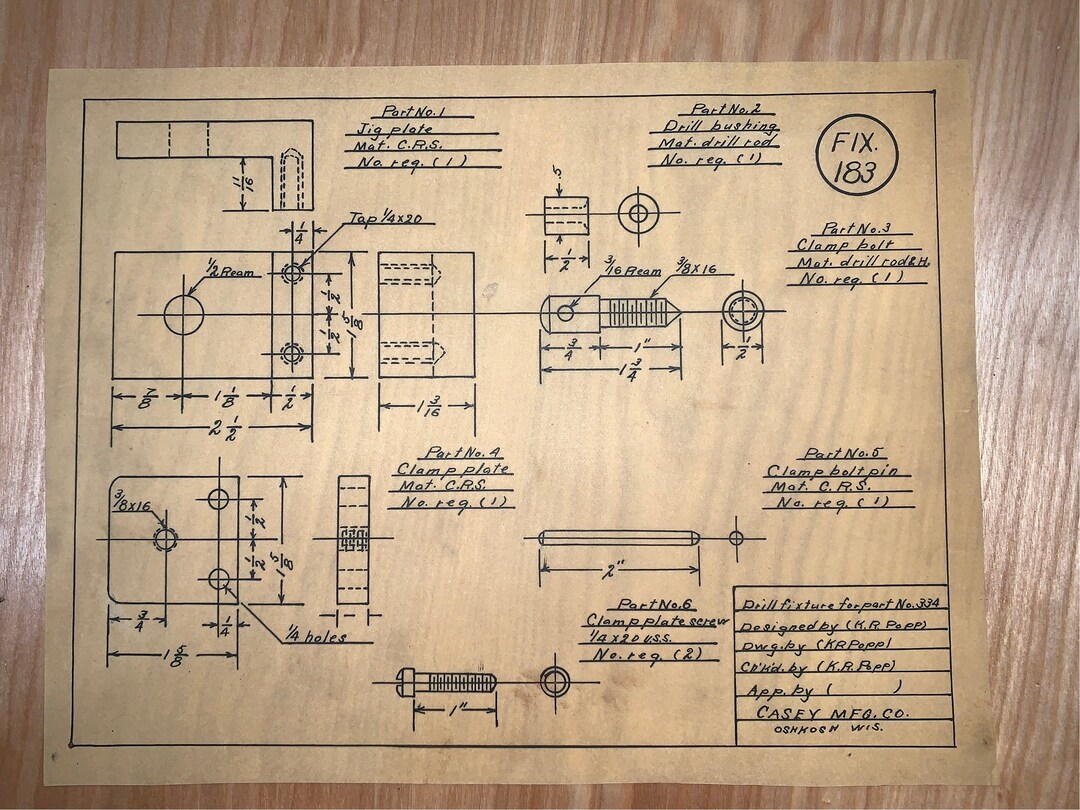 Part No. 1
Jig plate
Mat. C.R.S.
No. req. (1)
Part No. 2
Drill bushing
Mat. drill rod
No. req. (1)
FIX.
183
11/16
1/4
Tap 1/4 x 20
.5
1/2
Part No. 3
Clamp bolt
Mat. drill rod & H.
No. req. (1)
1/2 Ream
1/2
1/2
1 5/8
3/16 Ream
3/8 x 16
3/4
1"
1 3/4
1/2
7/8
1 1/8
1/2
2 1/2
1 3/16
Part No. 4
Clamp plate
Mat. C.R.S.
No. req. (1)
Part No. 5
Clamp bolt pin
Mat. C.R.S.
No. req. (1)
3/8 x 16
1/2
1/2
1 5/8
3/4
1/4
1/4 holes
1 5/8
2"
Part No. 6
Clamp plate screw
1/4 x 20 U.S.S.
No. req. (2)
1"
Drill fixture for part No. 334
Designed by (K.R. Popp)
Dwg. by (K.R. Popp)
Ch'kd. by (K.R. Popp)
App. by ( )
CASEY MFG. CO.
OSHKOSH WIS.